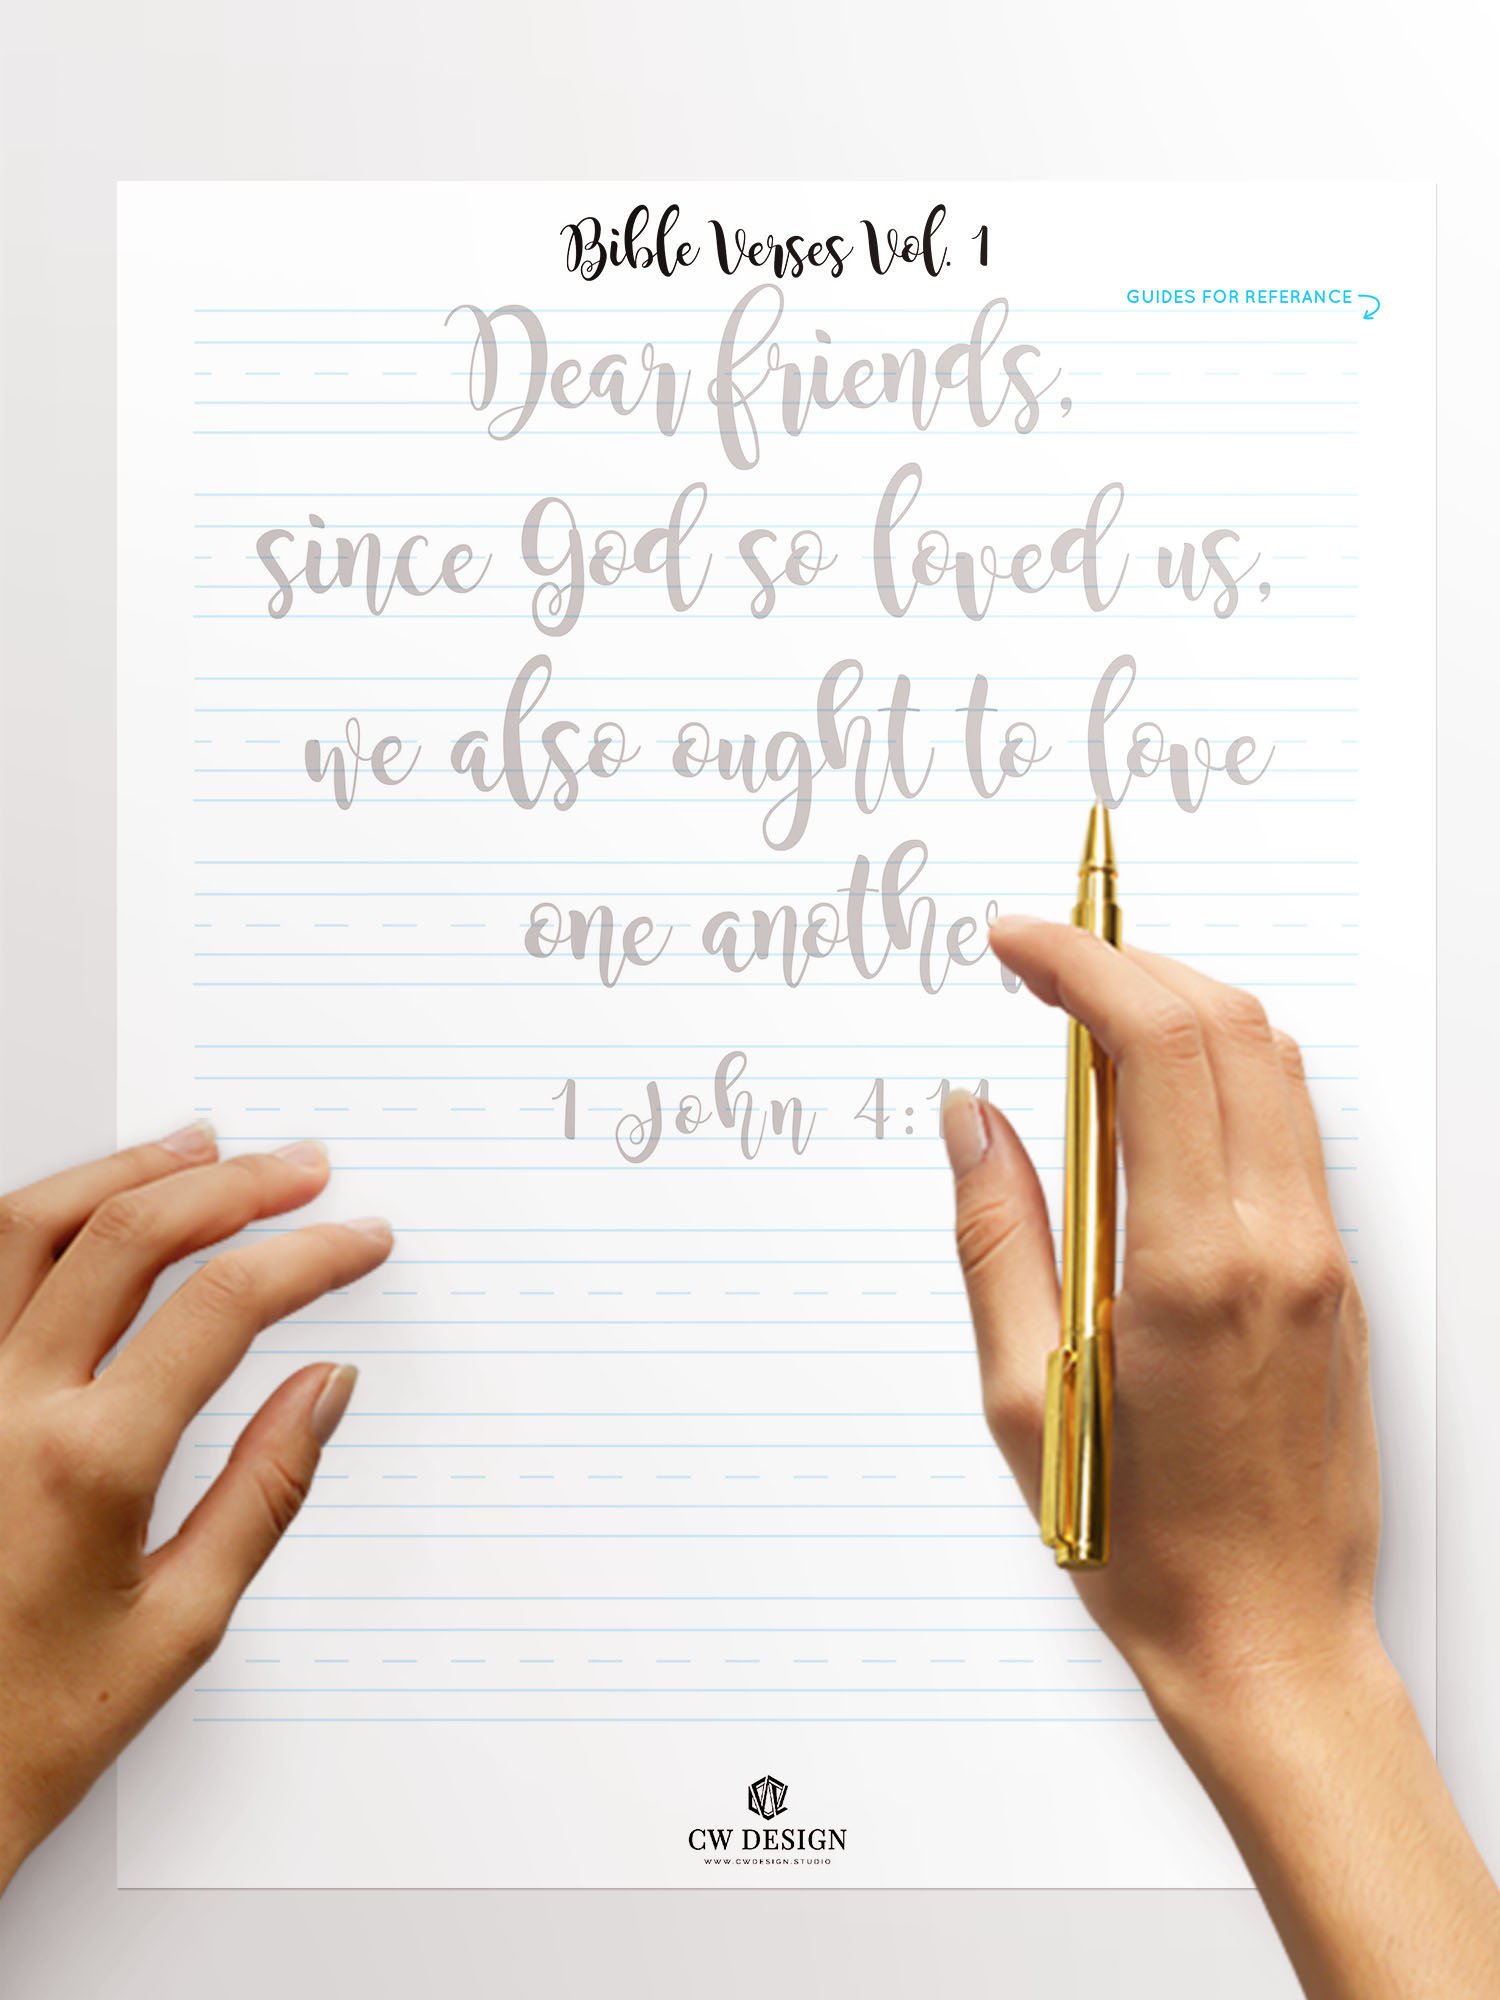 Bible Verses Vol. 1
GUIDES FOR REFERANCE
Dear friends,
since God so loved us,
we also ought to love
one another
1 John 4:11
CW DESIGN
WWW.CWDESIGN.STUDIO